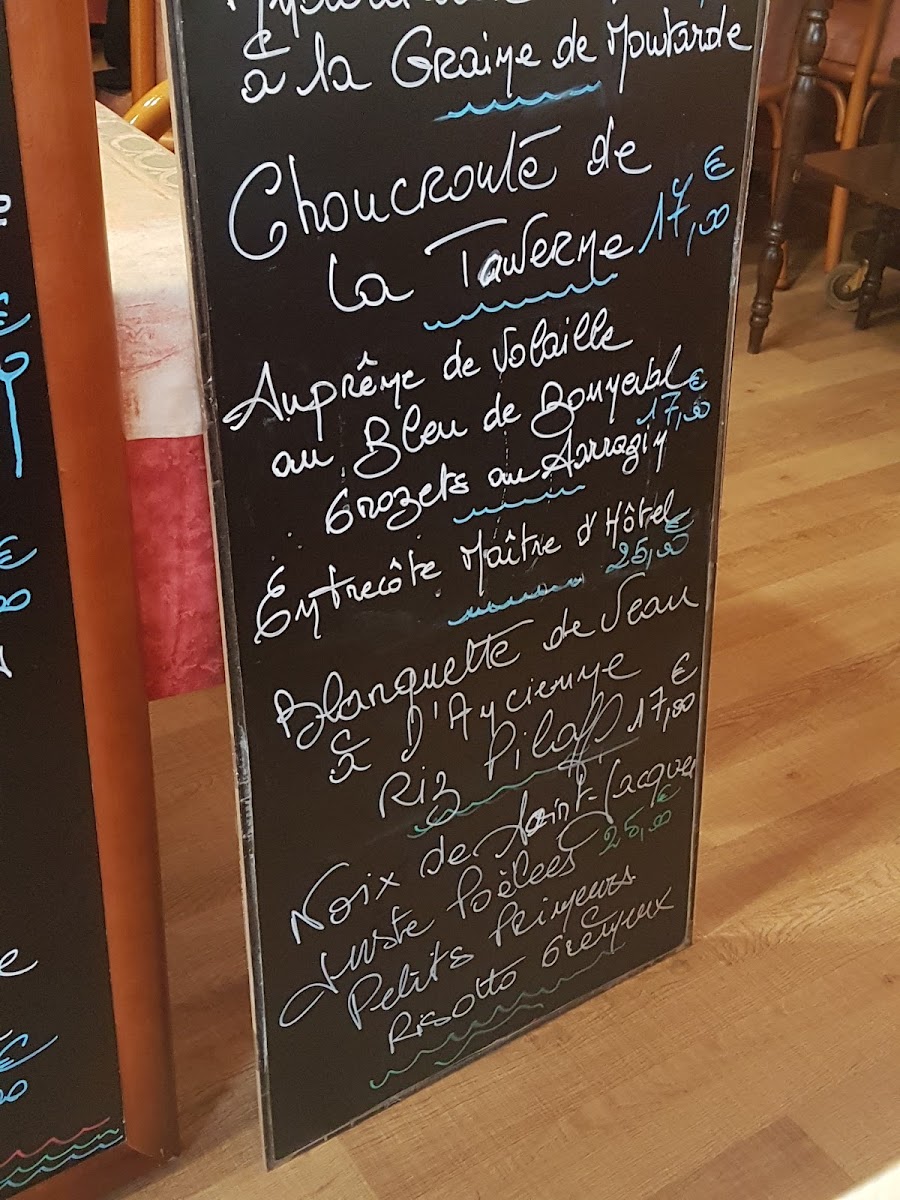 à la Graine de Moutarde
Choucroute de
la Taverne 17,00 €
Suprême de Volaille
au Bleu de Bonneval
17,00 €
Crozets au Sarrazin
Entrecôte Maître d'Hôtel
25,00 €
Blanquette de Veau
à L'Ancienne
Riz Pilaff 17,00 €
Noix de Saint-Jacques
Juste Poêlées 25,00 €
Petits Primeurs
Risotto Crémeux